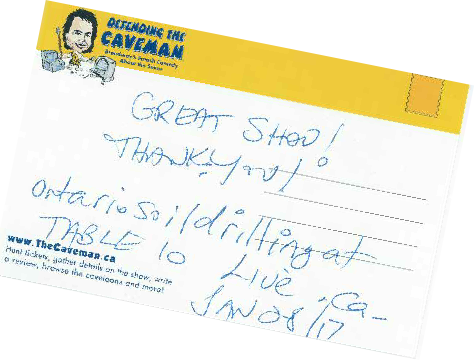 DEFENDING THE
CAVEMAN
About the Sexes
GREAT SHOW!
THANK YOU!
Ontariosoildrilling at
TABLE 10
Live.ca
JAN 28/17
www.TheCaveman.ca
Hunt tickets, gather details on the show, write
a review, browse the cavetoons and more!